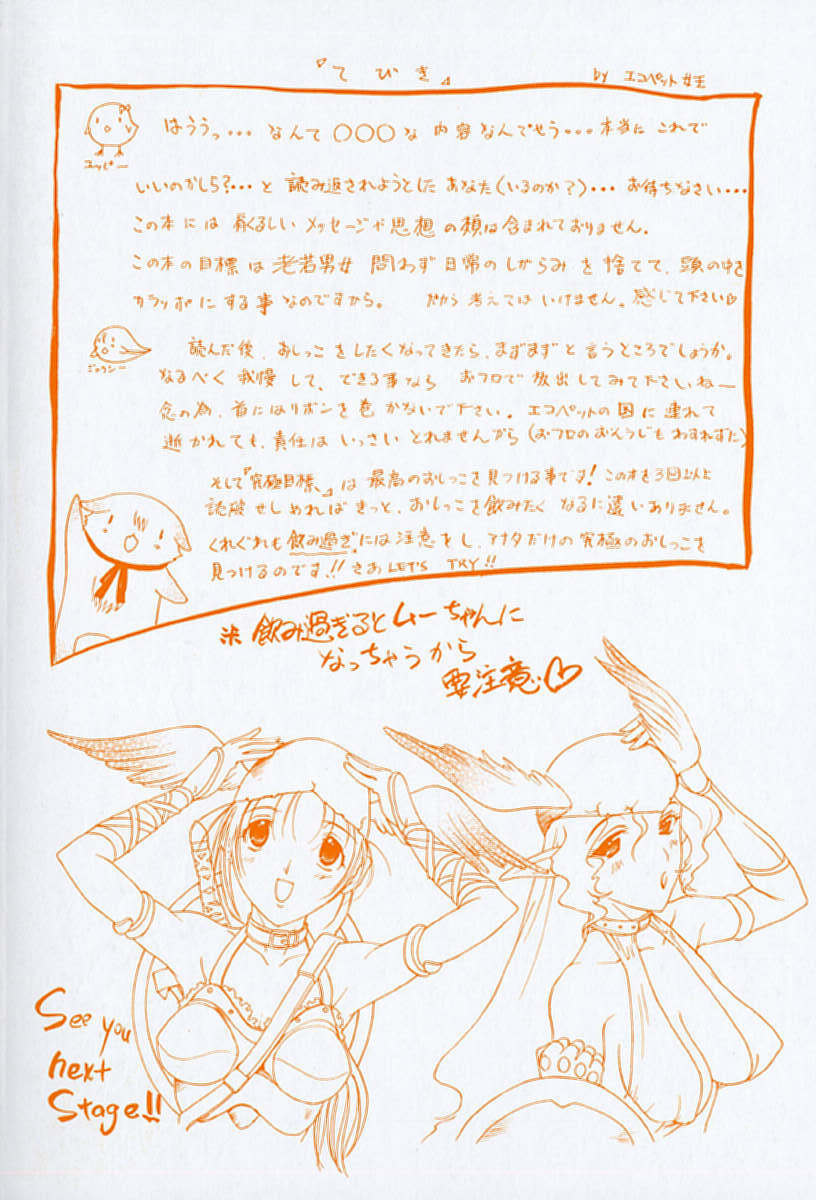 『てびき』
by エコペット女王
はううっ・・・なんて〇〇〇な内容なんでせう・・・本当にこれで
いいのかしら?・・・と読み返されようとしたあなた(いるのか?)・・・お待ちなさい・・・
この本には 苦しいメッセージや思想の類は含まれておりません.
この本の目標は老若男女問わず日常のしがらみを捨てて、頭の中を
カラッポにする事なのですから。 だから考えてはいけません。感じて下さい♡
読んだ後、おしっこをしたくなってきたら、まずまずと言うところでしょうか。
なるべく我慢して、できる事なら おフロで放出してみて下さいねー
念の為、首にはリボンを巻かないで下さい。エコペットの国に連れて
逝かれても、責任はいっさいとれませんから(おフロのおそうじもわすれずに)
そして『究極目標』は最高のおしっこを見つける事です!この本を3回以上
読破せしめればきっと、おしっこを飲みたくなるに違いありません。
くれぐれも飲み過ぎには注意をし、アナタだけの究極のおしっこを
見つけるのです!!さあLET'S TRY!!
※飲み過ぎるとムーちゃんに
なっちゃうから
要注意♡
See you
next
Stage!!